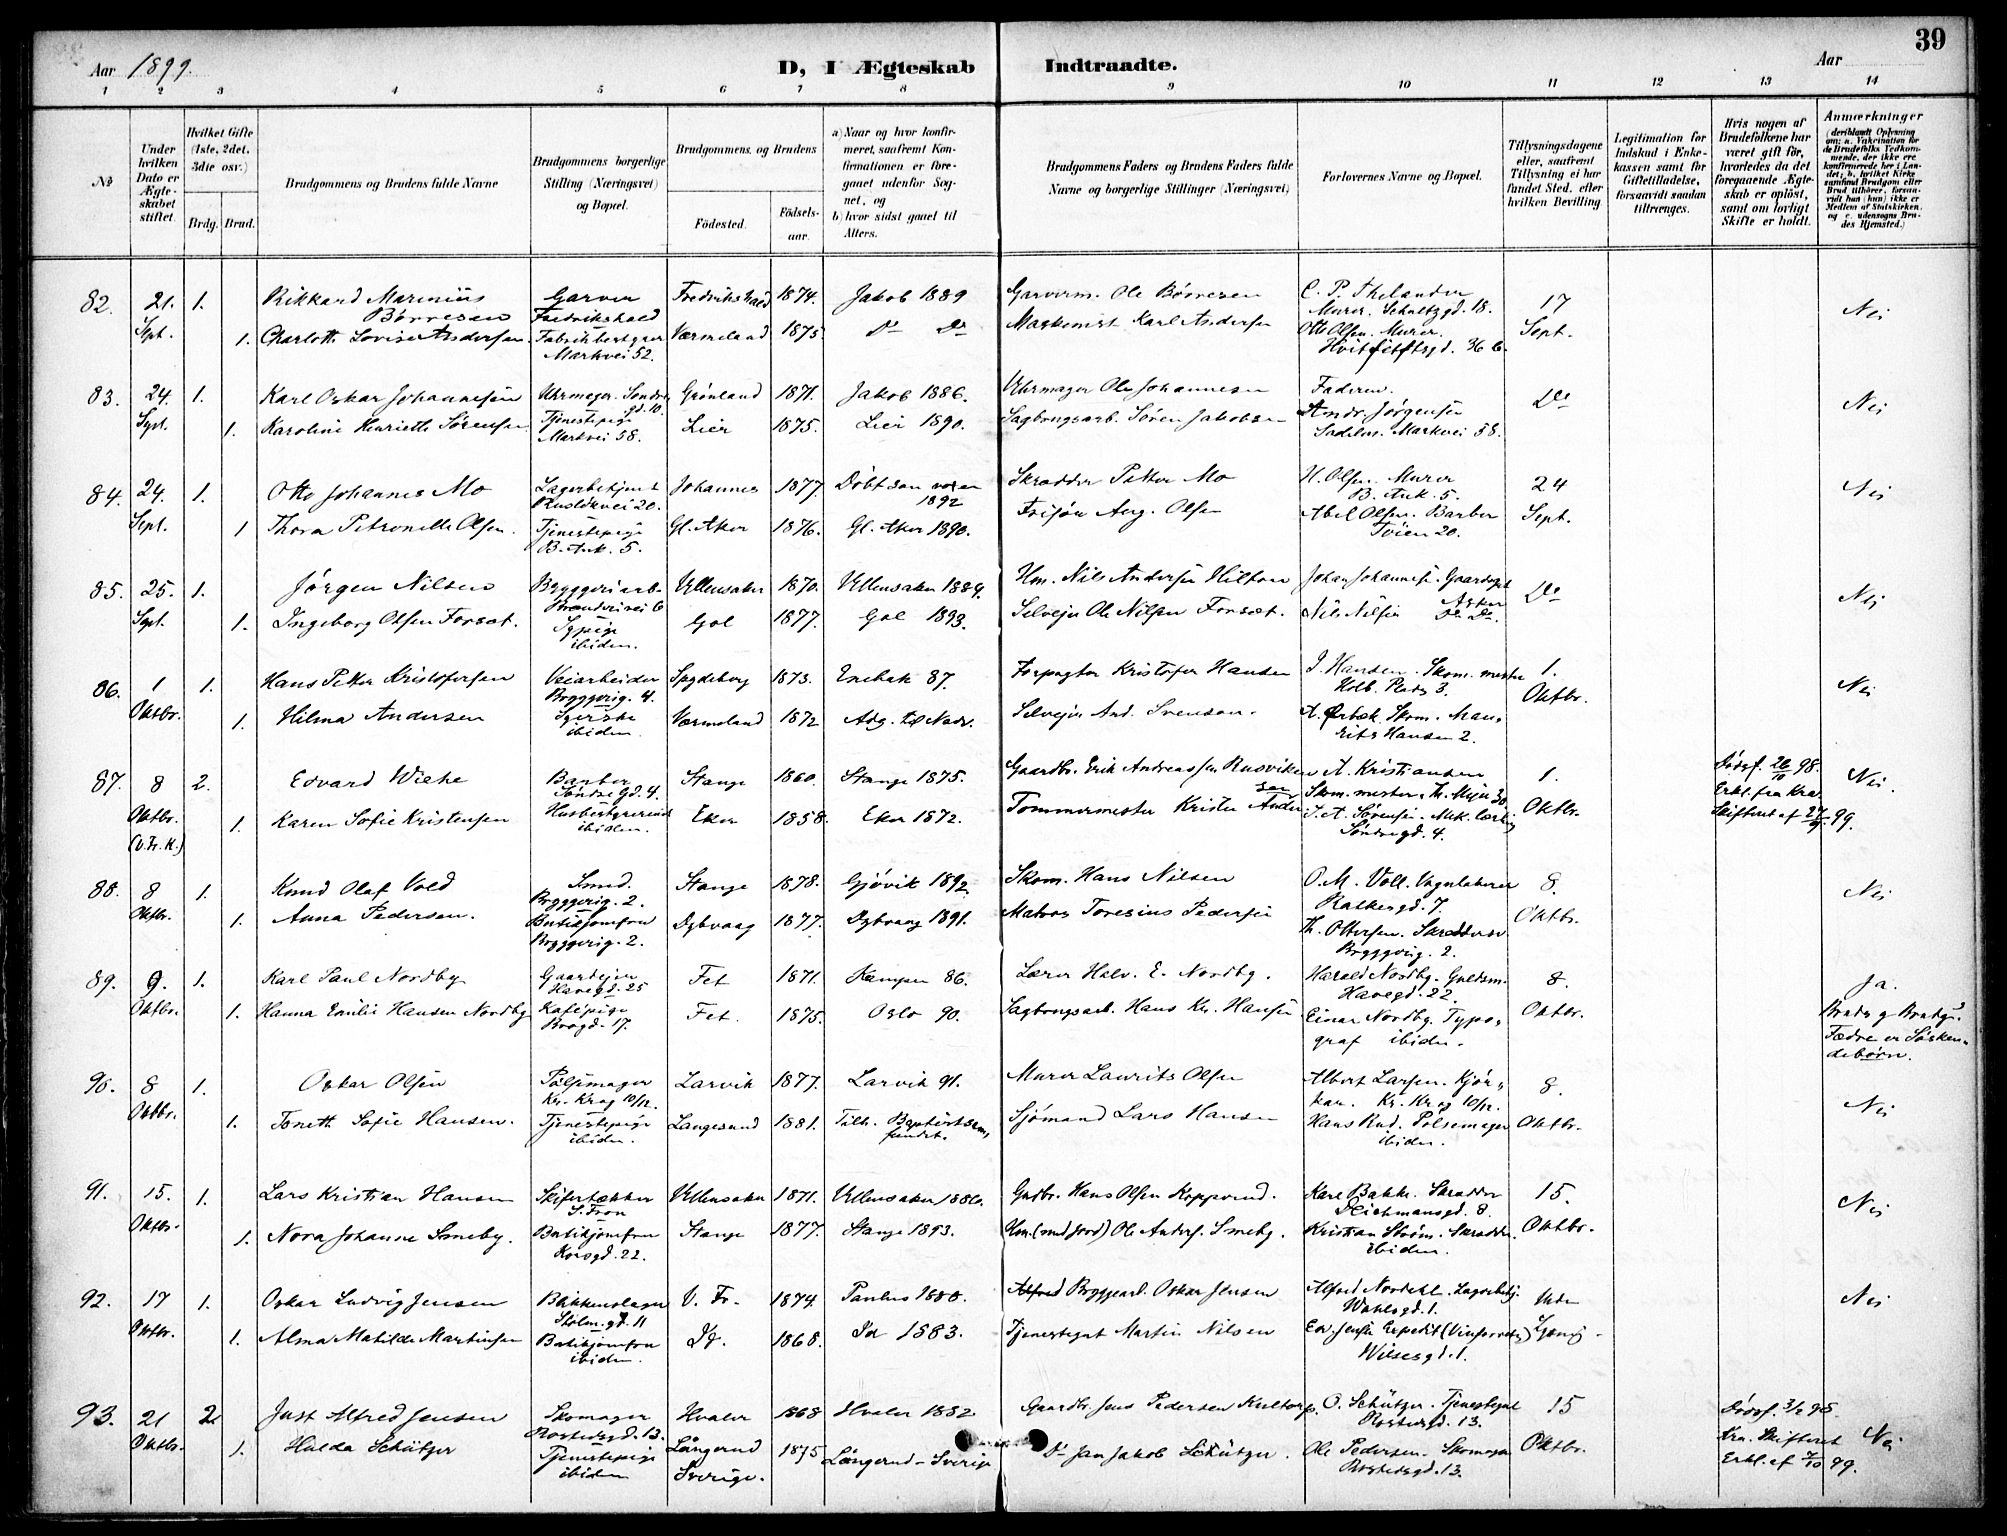 39
Aar 1899.
D, I Ægteskab Indtraadte.
Aar
1 2 3 4 5 6 7 8 9 10 11 12 13 14
No
Under hvilken Dato er Ægteskabet stiftet.
Hvilket Gifte (1ste, 2det, 3die osv.)
Brdg. Brud.
Brudgommens og Brudens fulde Navne
Brudgommens borgerlige Stilling (Næringsvei) og Bopæl.
Brudgommens og Brudens
Fødested. Fødselsaar.
a) Naar og hvor konfirmeret, saafremt Konfirmationen er foregaaet udenfor Sognet, og
b) hvor sidst gaaet til Alters.
Brudgommens Faders og Brudens Faders fulde Navne og borgerlige Stillinger (Næringsvei)
Forlovernes Navne og Bopæl.
Tillysningsdagene eller, saafremt Tillysning ei har fundet Sted, efter hvilken Bevilling
Legitimation for Indskud i Enkekassen samt for Giftetilladelse, forsaavidt saadan tiltrænges.
Hvis nogen af Brudefolkene har været gift før, hvorledes da det foregaaende Ægteskab er opløst, samt om lovligt Skifte er holdt.
Anmærkninger
82. 21. 1. Rikkard Marinius Børresen Garver Fredrikshald Fredrikshald 1874. Jakob 1889 Garverm. Ole Børresen C. P. Thelander Murer. Schultzgd. 18. 17 Nei
Sept. 1. Charlotte Lovise Andersen Markvei 52. Værmeland 1875. Do Do Maskinist Karl Andersen Otto Olsen. Murer. Hvitfeldtsgd. 36 b. Sept.
83. 24. 1. Karl Oskar Johannesen Uhrmager. Søndre gd. 10. Grønland 1871. Jakob 1886. Uhrmager Ole Johannesen Faderen. Do Nei
Sept. 1. Karoline Henriette Sørensen Tjenestepige Markvei 58. Lier 1875. Lier 1890. Sagbrugsarb. Søren Jakobsen Andr. Jørgensen Sadelm. Markvei 58.
84. 24. 1. Otto Johannes Mo Lagerbetjent Ruseløkvei 20. Johannes 1877. Døbt som voxen 1892 Skrædder Petter Mo H. Olsen. Murer B. Ank. 5. 24 Nei
Sept. 1 Thora Petronelle Olsen. Tjenestepige B. Ank. 5. Gl. Aker 1876. Gl. Aker 1890. Frisør Aug. Olsen Abel Olsen. Barber Tøien 20. Sept.
85. 25. 1. Jørgen Nilsen Bryggeriarb. Ullensaker 1870. Ullensaker 1884. Hm. Nils Andersen Hilton Johan Johannesen. Asker Do Nei
Sept. 1. Ingeborg Olsen Forsat. Sypige ibidem. Gol 1877. Gol 1893. Selveier Ole Nilsen Forsæt. Nils Nilsen Do Do.
86. 1 1. Hans Petter Kristofersen Veiarbeider Bryggerig. 4. Spydeberg 1873. Enebak 87. Forpagter Kristofer Hansen J. Hansen. Skom. mester Holb. Plads 3. 1. Nei
Oktbr. 1. Hilma Andersen Syerske ibidem Værmeland 1872 Adg. til Nadv. Selveier And. Svenson. A. Ørbæk. Skom. Maurits Hansen 2. Oktbr.
87. 8 2. Edvard Wiehe Søndre gd. 4. Stange 1860. Stange 1875. Gaardbr. Erik Andreassen Rusviken A. Kristiansen Skom. mester. Th. Meyer 30 1. Dødsf. 26/11 98. Nei.
Oktbr. 1. Karen Sofie Kristensen Husbestyrerinde ibidem. Eker 1858. Eker 1872. Tømmermester Krister Andersen J. A. Sørensen. Mek. Søndregd. 4. Oktbr. Erkl. fra Kra. Skifteret af 27/9 99.
(V. Fr. K.)
88. 8 1. Knud Olaf Vold Smed. Bryggerig. 2. Stange 1878. Gjøvik 1892. Skom. Hans Nilsen O. M. Voll. 8. Nei
Oktbr. 1. Anna Pedersen. Butikjomfru Bryggerig. 2. Dybvaag 1877. Dybvaag 1891. Matros Toresius Pedersen Th. Ottersen. Skrædder Bryggerig. 2. Oktbr.
89. 9. 1. Karl Paul Nordby Gaardejer Havegd. 25 Fet 1871. Kampen 86. Lærer Halv. E. Nordby. Harald Nordby. Guldsm. Havegd. 22. 8. Ja.
Oktbr. 1. Hanna Emilie Hansen Nordby Kafépige Brogd. 17. Fet. 1875. Oslo 90. Sagbrugsarb. Hans Kr. Hansen Einar Nordby. Typograf ibidem. Oktbr. Bruds og Brudg. Fædre er Søskendebørn.
90. 8 1. Oskar Olsen Pølsemager Kr. Krog 10/12. Larvik 1877. Larvik 91. Murer Laurits Olsen Albert Larsen. Kr. Krog 10/12. 8. Nei
Oktbr. 1. Tonette Sofie Hansen. Tjenestepige ibidem. Langesund 1881. Tilh. Baptistsamfundet. Sjømand Lars Hansen Hans Rud. Pølsemager ibidem. Oktbr.
91. 15. 1. Lars Kristian Hansen Skifertækker S. Fron Ullensaker 1871. Ullensaker 1886. Gndbr. Hans Olsen Karl Bakke. Skrædder Deichmansgd. 8. 15. Nei
Oktbr. 1. Nora Johanne Smeby. Butikjomfru Korsgd. 22. Stange 1877. Stange 1893. Hm. (med jord) Ole Anders. Smeby. Kristian Strøm. Skrædder. ibidem. Oktbr.
92. 17 1. Oskar Ludvig Jensen Blikkenslager Stolm. gd. 11 V. Fr. 1874. Paulus 1888. Bryggearb. Oskar Jensen Alfred Nordahl. Lagerbetj. Uden Nei
Oktbr. 1. Alma Matilde Martinsen Butikjomfru ibidem. Do. 1868. Do 1883. Tjenestegut Martin Nilsen Edv. Jensen Expedit Wilsesgd. 1. Lysning.
93. 21 2 Just Alfred Jensen Skomager Rostedsgd. 13. Hvaler 1868 Hvaler 1882 Gaardbr. Jens Pedersen O. Schützer. Tjenestegut Rostedsgd. 13. 15 Dødsf. 3/2 95. Nei
Oktbr. 1. Hulda Schützer Tjenestepige ibidem Långerud Sverige. 1875 Långerud - Sverige Do Jan Jakob Schützer. Ole Pedersen. Skomager Rostedsgd. 13. Oktbr. Kra. Skifteret Erkl. af 7/10 99.